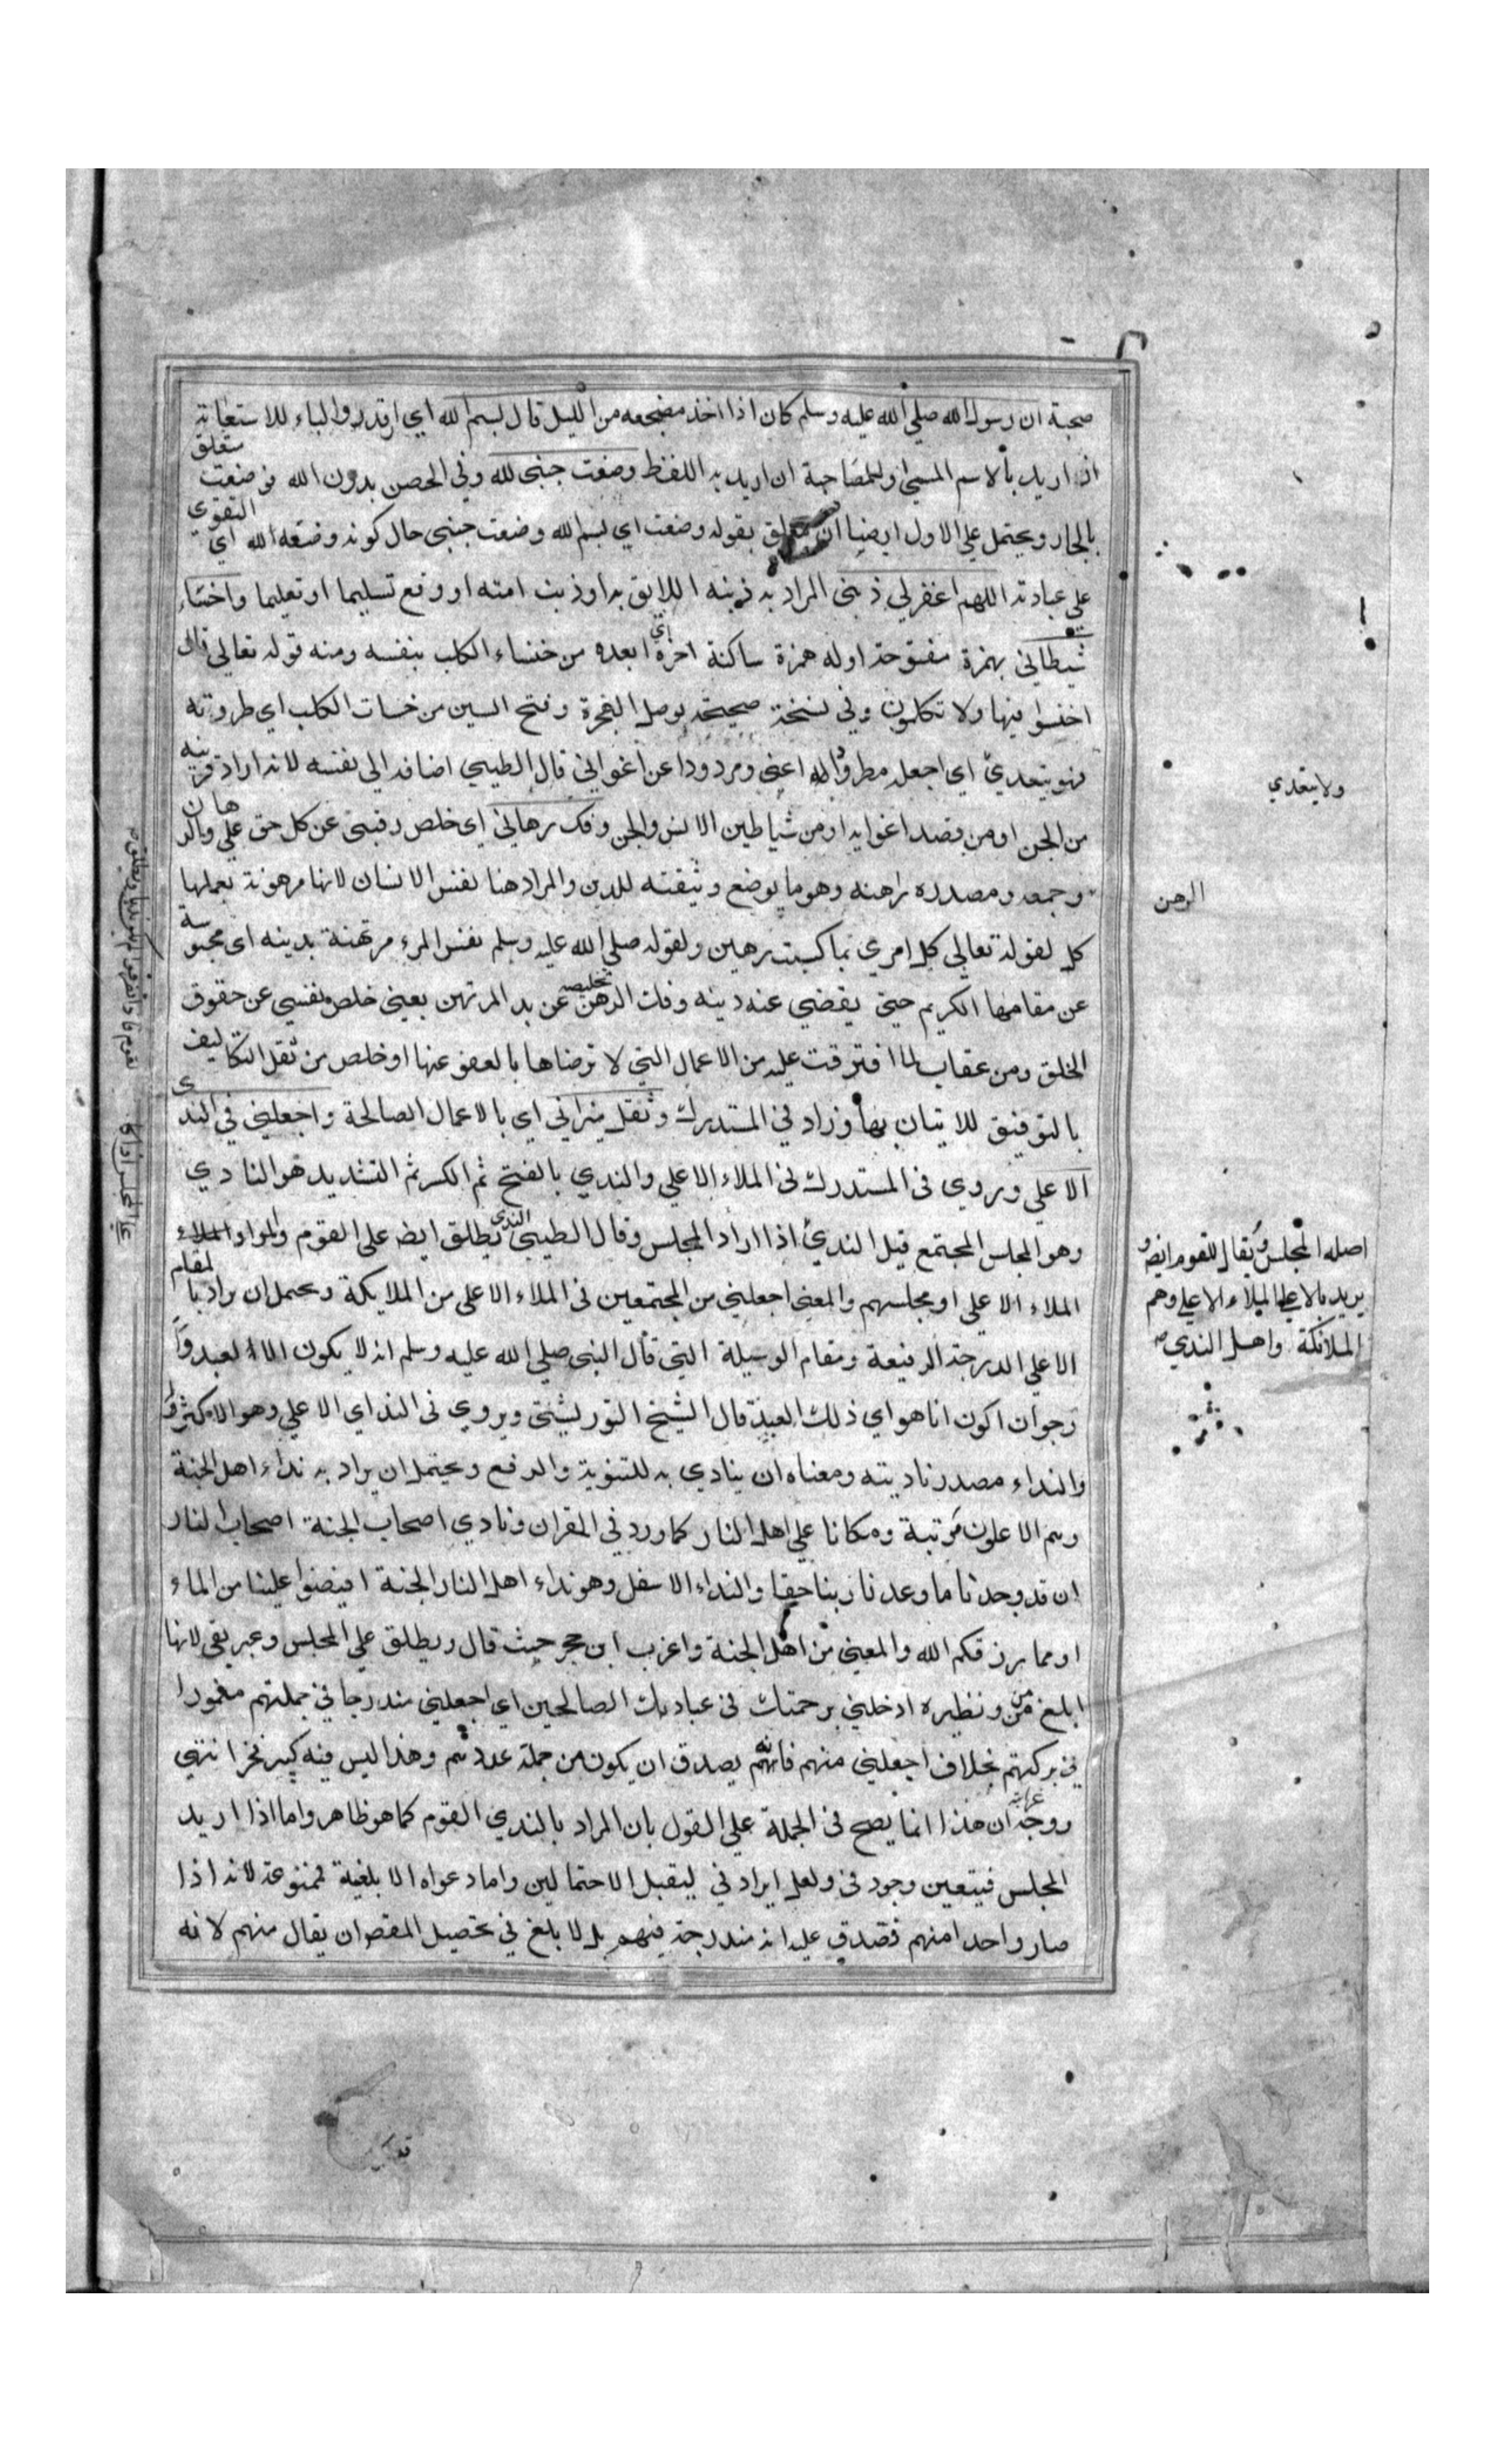 صحبة ان رسول الله صلي الله عليه وسلم كان اذا اخذ مضجعه من الليل قال بسم الله اي ارقد والباء للاستعانة
ان اريد بالاسم المسمي وللمصاحبة ان اريد به اللفظ وضعت جنبي لله وفي الحصن بدون الله فوضعت متعلق
بالجار ويحتمل علي الاول ايضا ان يتعلق بقوله وضعت اي بسم الله وضعت جنبي حال كونه وضعه الله اي التقوي
علي عبادته اللهم اغفرلي ذنبي المراد به ذنبه اللايق به او ذنب امته او وقع تسليما او تعليما واخسا
شيطاني بهمزة مفتوحة اوله همزة ساكنة اخره اي ابعده من خنساء الكلب بنفسه ومنه قوله تعالي قال
اخسوا فيها ولا تكلمون وفي نسخة صحيحة بوصل الهمزة وفتح السين من خسات الكلب اي طردته
فهو يتعدي اي اجعله مطرودا عني ومردودا عن اغوائي قال الطيبي اضافه الي نفسه لانه اراد قرينه
من الجن او من قصد اغوايه او من شياطين الانس والجن وفك رهاني اي خلص رقبتي عن كل حق علي والرهان
وجمعه ومصدره راهنه وهو ما يوضع وثيقته للدين والمراد هنا نفس الانسان لانها مرهونة بعملها
كل لقوله تعالي كل امري بما كسبت رهين ولقوله صلي الله عليه وسلم نفس المرء مرتهنة بدينه اي محبوسة
عن مقامها الكريم حيتي يقضي عنه دينه وفك الرهن تخليصه عن يد المرتهن يعني خلص نفسي عن حقوق
الخلق ومن عقاب لما افترقت عليه من الاعمال التي لا ترضاها بالعفو عنها او خلص من ثقل التكاليف
بالتوفيق للاتيان بها وزاد في المستدرك وثقل ميزاني اي بالاعمال الصالحة واجعلني في الندي
الاعلي ويروي في المستدرك في الملاء الاعلي والندي بالفتح ثم الكسر ثم التشديد هو النادي
وهو المجلس المجتمع قيل الندي اذا اراد المجلس وقال الطيبي الندي يطلق ايض علي القوم والمراد
الملاء الاعلي او مجلسهم والمعني اجعلني من المجتمعين في الملاء الاعلي من الملايكة ويحمل ان يراد بالمقام
الاعلي الدرجة الرفيعة ومقام الوسيلة التي قال النبي صلي الله عليه وسلم انه لا يكون الا لعبد وا
رجو ان اكون انا هو اي ذلك العبد قال الشيخ التوربشتي ويروي في النداي الاعلي وهو الاكثر
والنداء مصدر ناديته ومعناه ان ينادي به للتنويه والرفع ويحتمل ان يراد به نداء اهل الجنة
وهم الاعلون مرتبة ومكانا علي اهل النار كما ورد في القران ونادي اصحاب الجنة اصحاب النار
ان قد وجدنا ما وعدنا ربنا حقا والنداء الاسفل وهو نداء اهل النار الجنة افيضوا علينا من الماء
او مما رزقكم الله والمعني من اهل الجنة واغرب ابن حجر حيث قال ويطلق علي المجلس وعبر بفي لانها
ابلغ من ونظيره ادخلني برحمتك في عبادك الصالحين اي اجعلني مندرجا في جملتهم مغمورا
في بركتهم بخلاف اجعلني منهم فانه يصدق ان يكون من جملة عددهم وهذا ليس فيه كبير فخر انتهي
ووجه ان هذا انما يصح في الجملة علي القول بان المراد بالندي القوم كما هو ظاهر واما اذا اريد
المجلس فيتعين وجود في ولعل ايراد في ليقبل الاحتمالين واما دعواه الابلغية فممنوعة لانه اذا
صار واحدا منهم فصدق عليه انه مندرجة فيهم بل لا بلغ في تحصيل المقص ان يقال منهم لانه
ولا يتعدي
الرهن
اصله المجلس ويقال للقوم ايض و
يريد بالاعلي الملاء الاعلي وهم
الملائكة واهل الندي